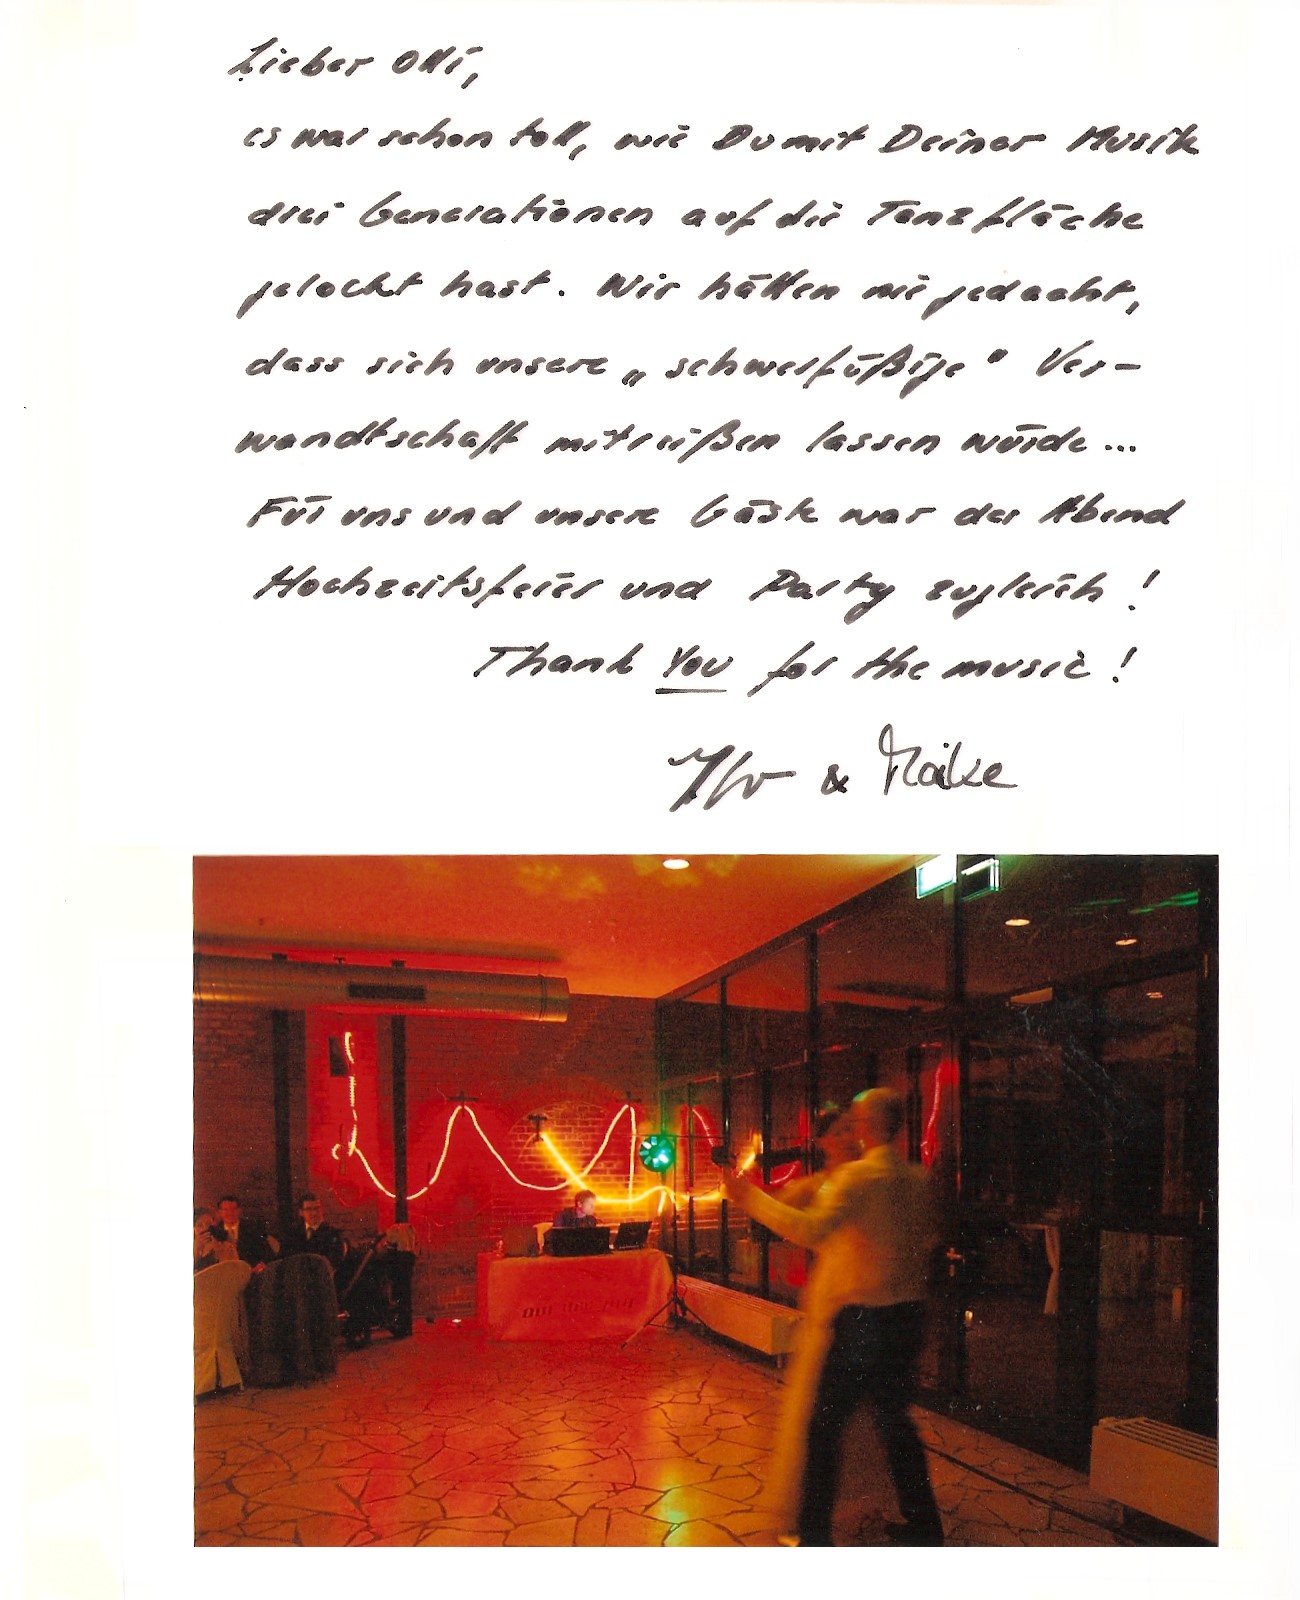 Lieber Olli,
es war schon toll, wie Du mit Deiner Musik
drei Generationen auf die Tanzfläche
gelockt hast. Wir hätten nie gedacht,
dass sich unsere „schwerfüßige" Ver-
wandtschaft mitreißen lassen würde...
Für uns und unsere Gäste war der Abend
Hochzeitsfeier und Party zugleich!
Thank You for the music!
& Maike